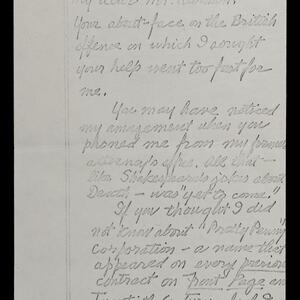 my dear Mr.
Your about-face on the British
offence on which I sought
your help went too fast for
me.
You may have noticed
my amazement when you
phoned me from my former
attorney's office. All that –
like Shakespeare's jokes about
Death – was "yet to come"
If you thought I did
not know about "Pretty Penny"
Corporation – a name that
appeared on every previous
contract on front Page and